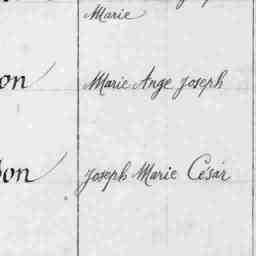 Marie
on Marie Ange Joseph
on Joseph Marie César